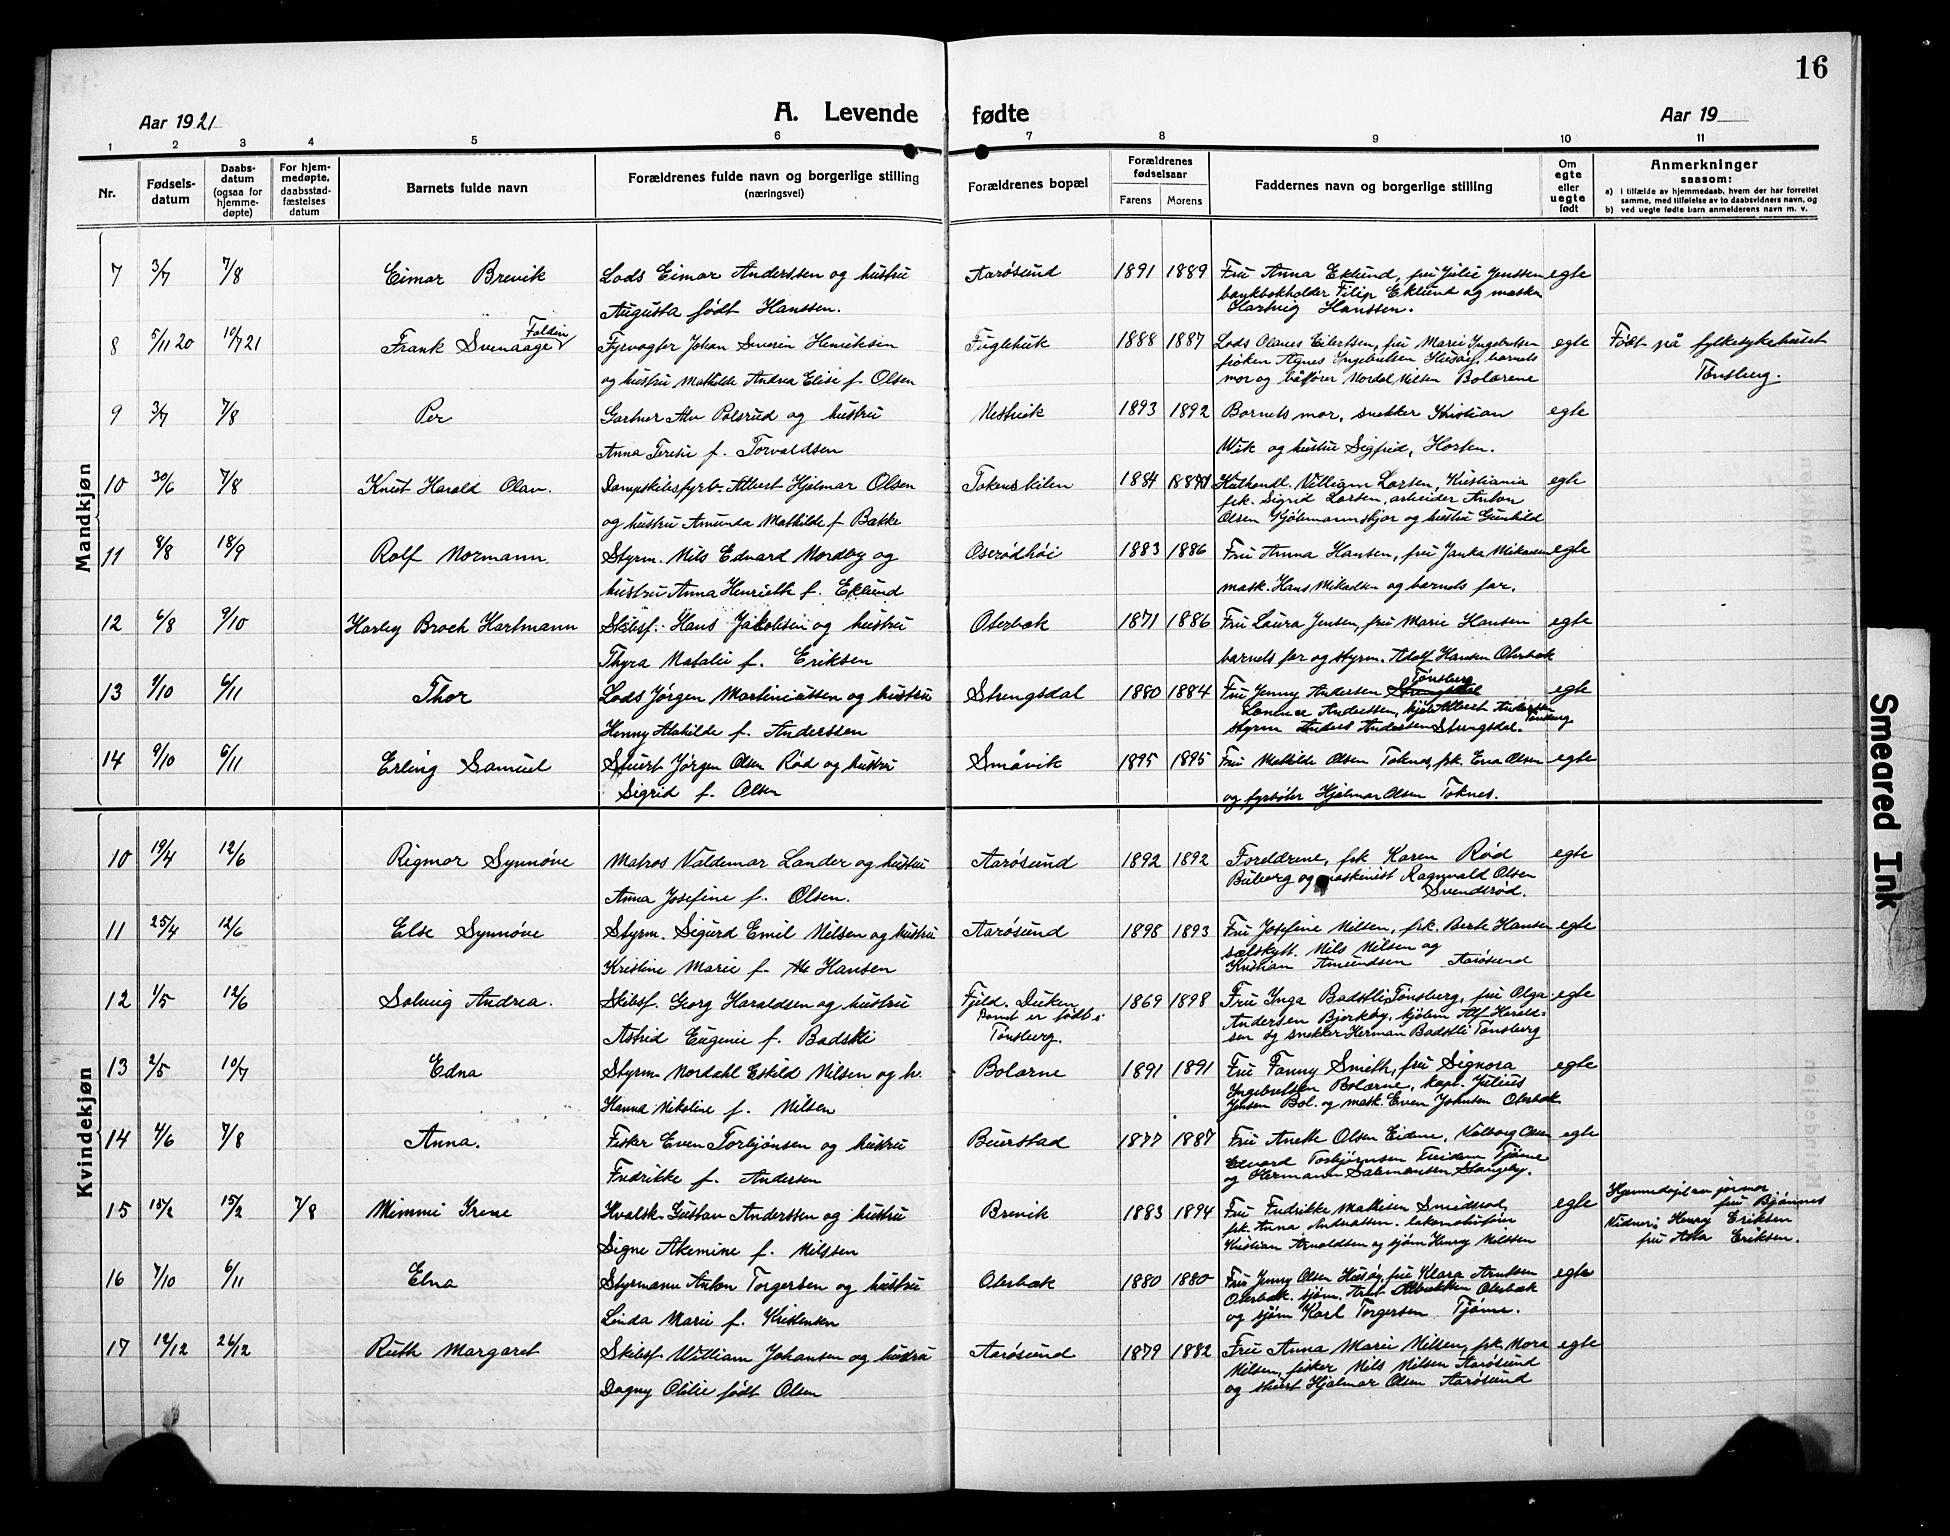 16
A. Levende fødte
Aar 1921
Aar 19
1 2 3 4 5 6 7 8 9 10 11
Nr.
Fødsels-
datum
Daabs-
datum
(ogsaa for
hjemme-
døpte)
For hjem-
medøpte,
daabsstad-
fæstelses
datum
Barnets fulde navn
Forældrenes fulde navn og borgerlige stilling
(næringsvei)
Forældrenes bopæl
Forældrenes
fødselsaar
Farens Morens
Faddernes navn og borgerlige stilling
Om
egte
eller
uegte
født
Anmerkninger
saasom:
a) i tilfælde av hjemmedaab, hvem der har forrettet
samme, med tilføielse av to daabsvidners navn, og
b) ved uegte fødte barn anmelderens navn m. v.
Mandkjøn
7 3/7 7/8 Eimar Brevik Lods Eimar Anderssen og hustru Aarøsund 1891 1889 Fru Anna Eklund, fru Julie Jenssen egte
bankbokholder Filip Eklund og maskn
Augusta født Hanssen. Hartvig Hanssen.
Foldin
8 5/11 20 10/7 21 Frank Svenaage Fyrvogter Johan Severin Henriksen Fuglehuk 1888 1887 Lods Olanes Eilertsen, fru Marie Ingebretsen egte Født på fylkesykehuset
frøken Agnes Ingebretsen Husøy, barnets
og hustru Mathilde Andrea Elise f. Olsen mor og båtfører Nordal Nilsen Bolærene Tønsberg.
9 3/7 7/8 Per Gartner Alv Polsrud og hustru Nestvik 1893 1892 Barnets mor, snekker Kristian egte
Anna Terese f. Torvaldsen Wik og hustru Sigfrid, Horten.
10 30/6 7/8 Knut Harald Olav. Dampskibsfyrb. Albert Hjalmar Olsen Tokenskilen 1884 Kulhandl. William Larsen, Kristiania egte
frk. Sigrid Larsen, arbeider Anton
og hustru Amunda Mathilde f Bakke Olsen Kjøbmannskjær og hustru Gunhild
11 8/8 18/9 Rolf Normann Styrm. Nils Edvard Nordby og Oserødhøi 1883 1886 Fru Anna Hansen, fru Janka Mikalsen egte
hustru Anna Henriette f. Eklund mask. Hans Mikalsen og barnets far.
12 6/8 9/10 Harley Broch Hartmann Skibsf. Hans Jakobsen og hustru Oterbæk 1871 1886 Fru Laura Jensen, fru Marie Hansen egte
Thyra Natalie f. Eriksen barnets far og styrm. Adolf Hansen Oterbæk
Tønsberg
13 9/10 6/11 Thor Lods Jørgen Martiniussen og hustru Strengsdal 1880 1884 Fru Jenny Andersen Strengsdal egte
Anderssen, kjøbm Albert Anderssen Tønsberg
Henny Mathilde f. Anderssen styrm Anders Andersen Strengsdal.
14 9/10 6/11 Erling Samuel Stuert Jørgen Olsen Rød og hustru Småvik 1895 1895 Fru Mathilde Olsen Toknes, frk. Eva Olsen egte
Sigrid f. Olsen og fyrbøter Hjalmar Olsen Toknes.
Kvindekjøn
10 19/4 12/6 Rigmor Synnøve Matros Valdemar Lander og hustru Aarøsund 1892 1892 Foreldrene, frk Karen Rød egte
Buberg og maskinist Ragnvald Olsen
Anna Josefine f. Olsen. Svendsrød.
11 25/4 12/6 Else Synnøve Styrm. Sigurd Emil Nilsen og hustru Aarøsund 1898 1893 Fru Josefine Nilsen, frk. Berte Hansen egte
sælskytt. Nils Nilsen og
Kristine Marie f. Hansen Kristian Amundsen Aarøsund
12 1/5 12/6 Solveig Andrea. Skibsf. Georg Haraldsen og hustru Fjeld. Duken 1869 1898 Fru Inga Badstli Tønsberg, fru Olga egte
Barnet er født i Andersen Bjerkøy, kjøbm Alf Herald-
Astrid Eugenie f. Badstli Tønsberg. sen og snekker Herman Badstli Tønsberg
13 2/5 10/7 Edna Styrm. Nordahl Eskild Nilsen og h. Bolærne 1891 1891 Fru Fanny Smith, fru Signora egte
Ingebretsen Bolærne, kapt. Julius
Hanna Nikoline f. Nilsen Jensen Bol. og mask. Even Johnsen Oterbæk
14 4/6 7/8 Anna. Fisker Even Torbjønsen og hustru Buerstad 1877 1887 Fru Anette Olsen Eidene, Valborg Olsen egte
Edvard Torbjørnsen Treidem Tjøme
Fredrikke f. Andersen og Hermann Salmansen Stangeby.
15 15/2 15/2 7/8 Mimmi Irene Hvalsk. Gustav Anderssen og hustru Brevik 1883 1894 Fru Fredrikke Mathisen Smidsrød, egte Hjemmedøpt av jormor
frk. Anna Andreassen. lokomotivfører fru Bjønnes
Signe Akemine f. Nilssen Kristian Arnoldsen og sjøm Henry Nilssen Vidner: Henry Eriksen
fru Asta Eriksen.
16 7/10 6/11 Elna Styrmann Anton Torgersen og hustru Oterbæk 1880 1880 Fru Jenny Olsen Husøy, fru Klara Arntsen egte
Oterbæk. sjøm. Oterbæk
Linda Marie f. Kristensen og sjøm Karl Torgersen Tjøme.
17 12/12 26/12 Ruth Margaret Skibsf. William Johansen og hustru Aarøsund 1879 1882 Fru Anna Marie Nilsen, frk Nora egte
Nilsen, fisker Nils Nilsen Aarøsund
Dagny Otilie født Olsen og stuert Hjalmar Olsen Aarøsund
Smeared Ink